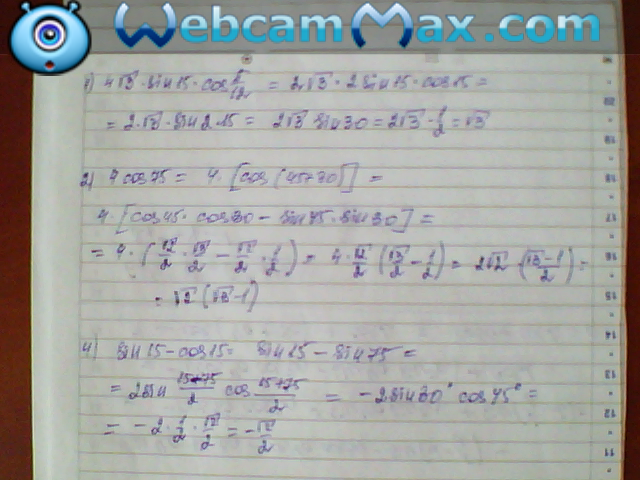 WebcamMax.com
1) 4√3 · sin15 · cos π/12 = 2√3 · 2sin15 · cos15 =
= 2·√3 · sin2·15 = 2√3 sin30 = 2√3 · 1/2 = √3
2) 4cos75 = 4·[cos(45+30)] =
4·[cos45 · cos30 − sin45 · sin30] =
= 4·(√2/2 · √3/2 − √2/2 · 1/2) = 4·√2/2 (√3/2 − 1/2) = 2√2 · (√3−1/2) =
= √2(√3−1)
4) sin15 − cos15 = sin15 − sin75 =
= 2sin 15+75/2 cos 15+75/2 = −2sin30° cos45° =
= −2 · 1/2 · √2/2 = −√2/2
18
17
16
15
14
13
12
11